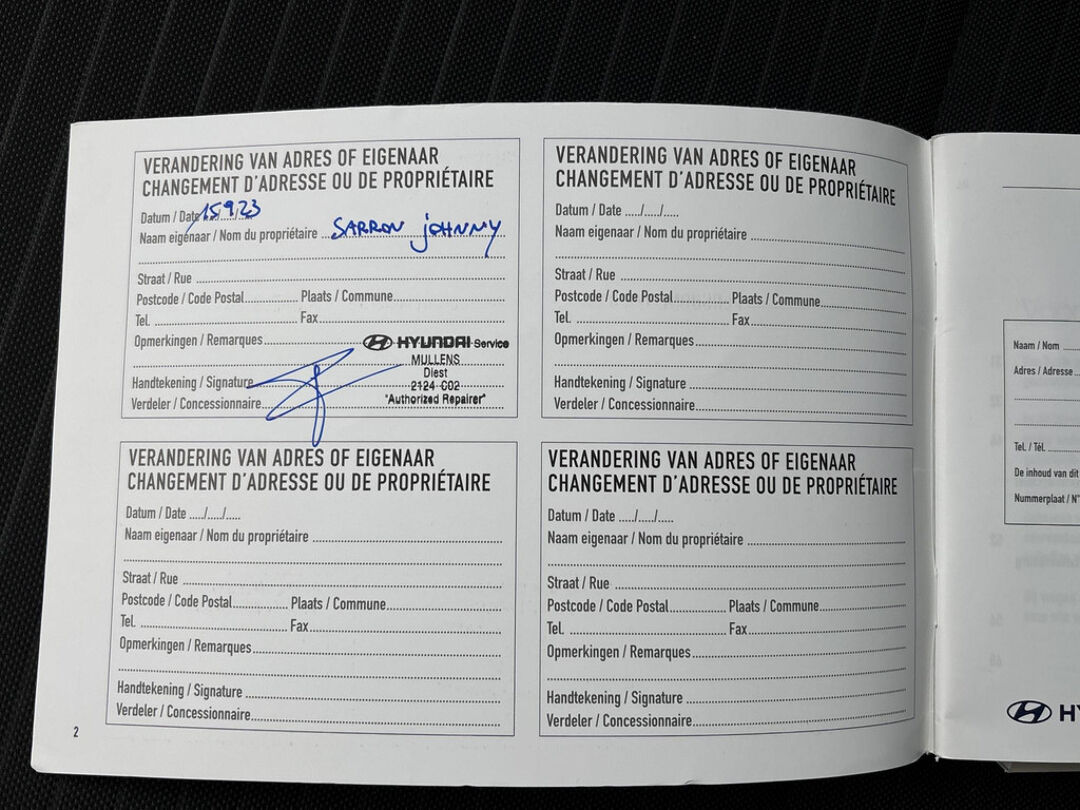 VERANDERING VAN ADRES OF EIGENAAR
CHANGEMENT D'ADRESSE OU DE PROPRIÉTAIRE
Datum / Date 15/9/23
Naam eigenaar / Nom du propriétaire SARRON JOHNNY
Straat / Rue
Postcode / Code Postal Plaats / Commune
Tel. Fax
Opmerkingen / Remarques
HYUNDAI Service
MULLENS
Diest
2124 C02
"Authorized Repairer"
Handtekening / Signature
Verdeler / Concessionnaire
VERANDERING VAN ADRES OF EIGENAAR
CHANGEMENT D'ADRESSE OU DE PROPRIÉTAIRE
Datum / Date ...../...../.....
Naam eigenaar / Nom du propriétaire
Straat / Rue
Postcode / Code Postal Plaats / Commune
Tel. Fax
Opmerkingen / Remarques
Handtekening / Signature
Verdeler / Concessionnaire
VERANDERING VAN ADRES OF EIGENAAR
CHANGEMENT D'ADRESSE OU DE PROPRIÉTAIRE
Datum / Date ...../...../.....
Naam eigenaar / Nom du propriétaire
Straat / Rue
Postcode / Code Postal Plaats / Commune
Tel. Fax
Opmerkingen / Remarques
Handtekening / Signature
Verdeler / Concessionnaire
VERANDERING VAN ADRES OF EIGENAAR
CHANGEMENT D'ADRESSE OU DE PROPRIÉTAIRE
Datum / Date ...../...../.....
Naam eigenaar / Nom du propriétaire
Straat / Rue
Postcode / Code Postal Plaats / Commune
Tel. Fax
Opmerkingen / Remarques
Handtekening / Signature
Verdeler / Concessionnaire
2
Naam / Nom
Adres / Adresse
Tel. / Tél.
De inhoud van dit
Nummerplaat / N°
HY